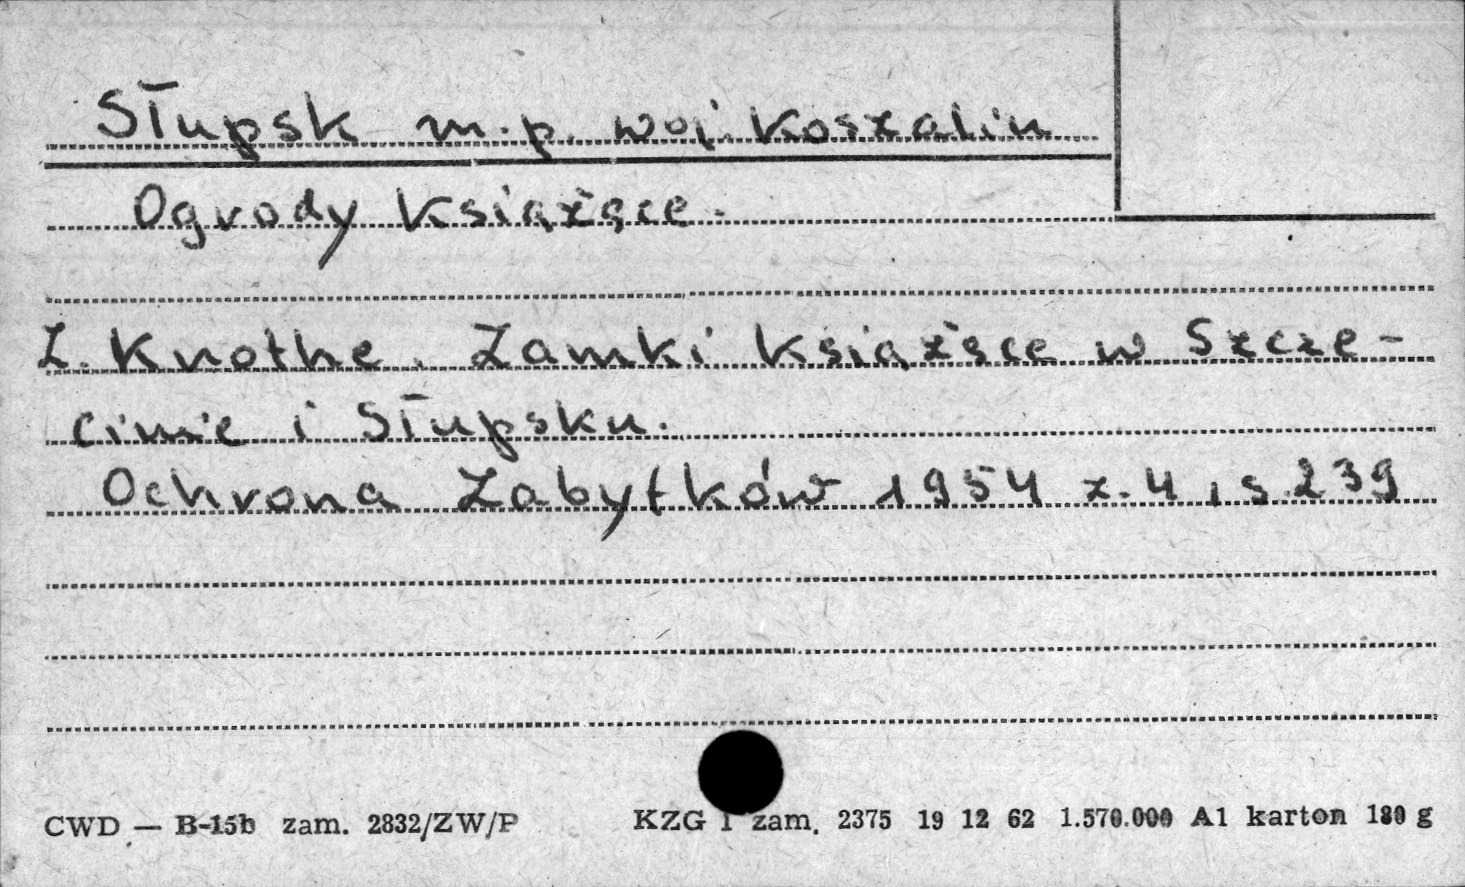 Słupsk m.p. woj. Koszalin
Ogrody Książęce.
Z. Knothe. Zamki Książęce w Szcze-
cinie i Słupsku.
Ochrona Zabytków 1954 z. 4, s. 239
CWD — B-15b zam. 2832/ZW/P KZG 1 zam. 2375 19 12 62 1.570.000 A1 karton 180 g